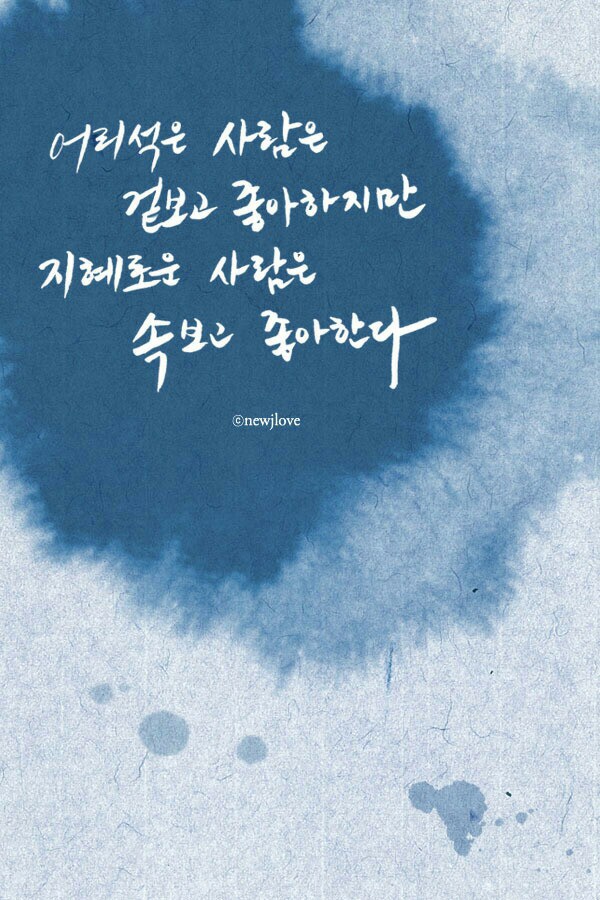 어리석은 사람은
겉보고 좋아하지만
지혜로운 사람은
속보고 좋아한다
©newjlove